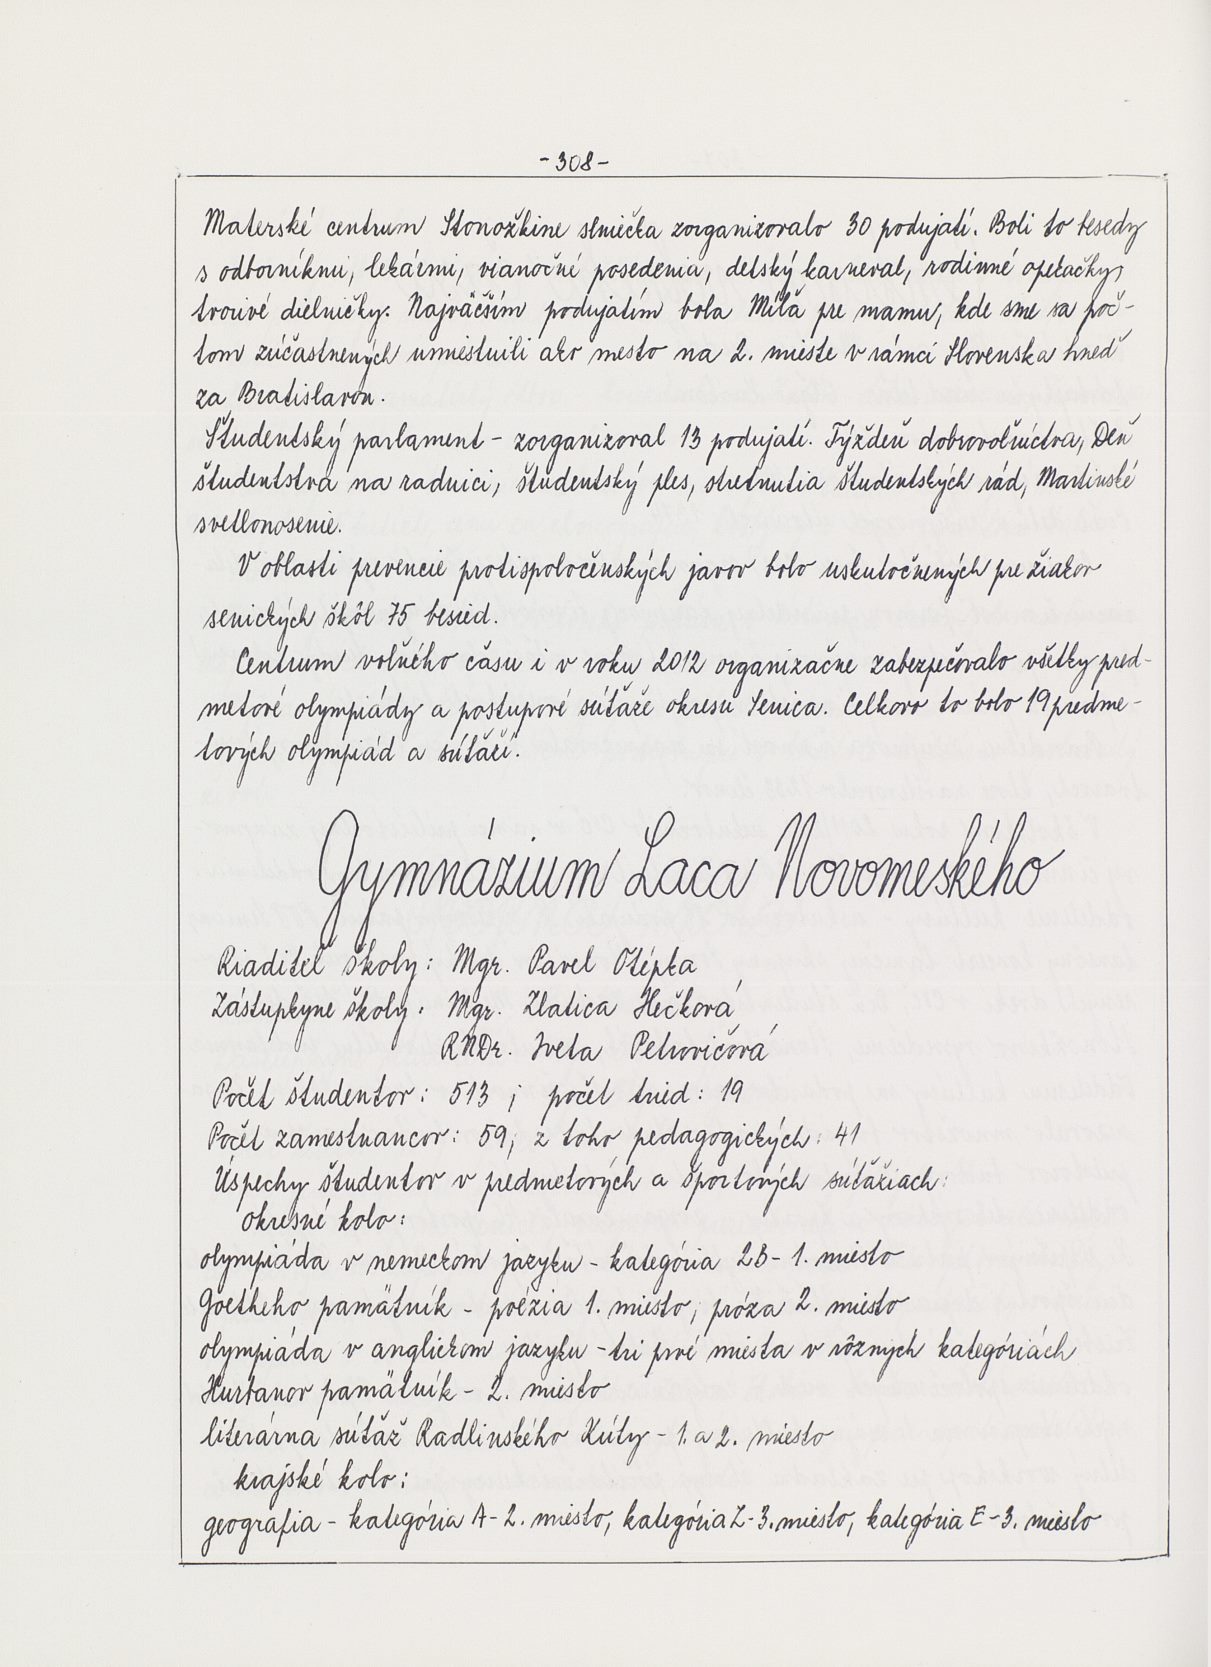 - 308 -
Materské centrum Stonožkine slniečka zorganizovalo 30 podujatí. Boli to besedy
s odborníkmi, lekármi, vianočné posedenia, detský karneval, rodinné opekačky,
tvorivé dielničky. Najväčším podujatím bola Míľa pre mamu, kde sme sa poč-
tom zúčastnených umiestnili ako mesto na 2. mieste v rámci Slovenska hneď
za Bratislavou.
Študentský parlament - zorganizoval 13 podujatí. Týždeň dobrovoľníctva, Deň
študentstva na radnici, študentský ples, stretnutia študentských rád, Martinské
svetlonosenie.
V oblasti prevencie protispoločenských javov bolo uskutočnených pre žiakov
senických škôl 75 besied.
Centrum voľného času i v roku 2012 organizačne zabezpečovalo všetky pred-
metové olympiády a postupové súťaže okresu Senica. Celkovo to bolo 19 predme-
tových olympiád a súťaží.
Gymnázium Laca Novomeského
Riaditeľ školy: Mgr. Pavel Otépka
Zástupkyne školy: Mgr. Zlatica Hečková
RNDr. Iveta Petrovičová
Počet študentov: 513; počet tried: 19
Počet zamestnancov: 59, z toho pedagogických: 41
Úspechy študentov v predmetových a športových súťažiach:
okresné kolo:
olympiáda v nemeckom jazyku - kategória 2B - 1. miesto
Goetheho pamätník - poézia 1. miesto, próza 2. miesto
olympiáda v anglickom jazyku - tri prvé miesta v rôznych kategóriách
Hurbanov pamätník - 2. miesto
literárna súťaž Radlinského Kúty - 1. a 2. miesto
krajské kolo:
geografia - kategória A - 2. miesto, kategória Z - 3. miesto, kategória E - 3. miesto